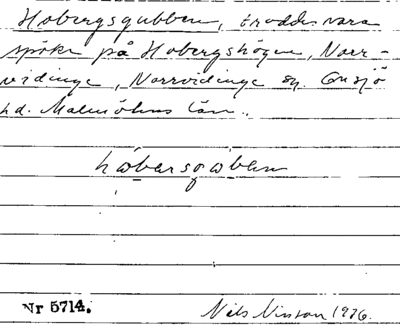 Hobergsgubben, troddes vara
spöke på Hobergshögen, Norr-
vidinge, Norrvidinge sn. Onsjö
hd. Malmöhus län.
Nr 5714.
Nils Ninson 1936.